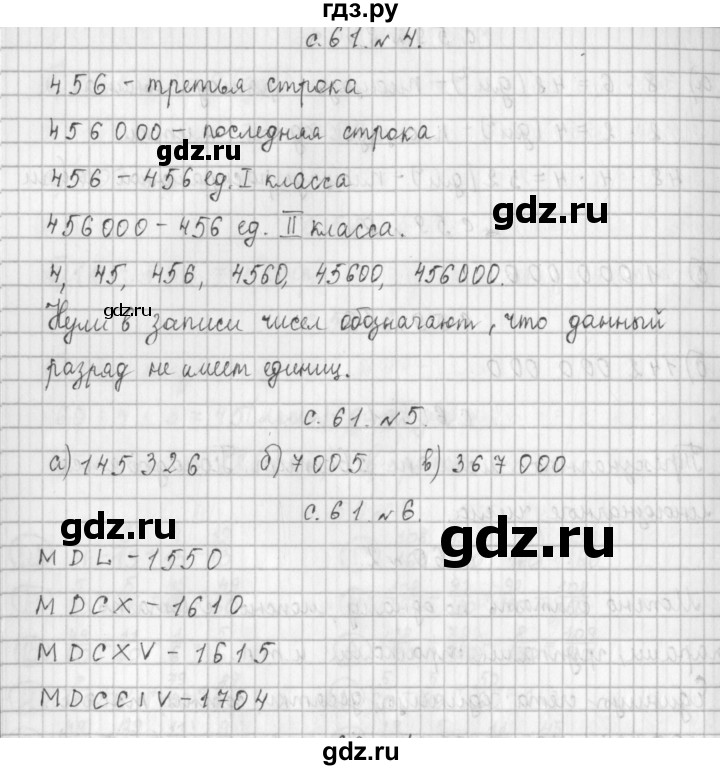 гдз.ру
с. 61. № 4.
456 - третья строка
456000 - последняя строка
gdz.ru
456 - 456 ед. I класса
gdz.ru
456000 - 456 ед. II класса.
4, 45, 456, 4560, 45600, 456000.
gdz.ru
Нули в записи чисел обозначают, что данный
разряд не имеет единиц.
с. 61. № 5.
а) 145326 б) 7005 в) 367000
с. 61. № 6.
gdz.ru
gdz.ru
MDL - 1550
MDCX - 1610
MDCXV - 1615
MDCCIV - 1704
gdz.ru